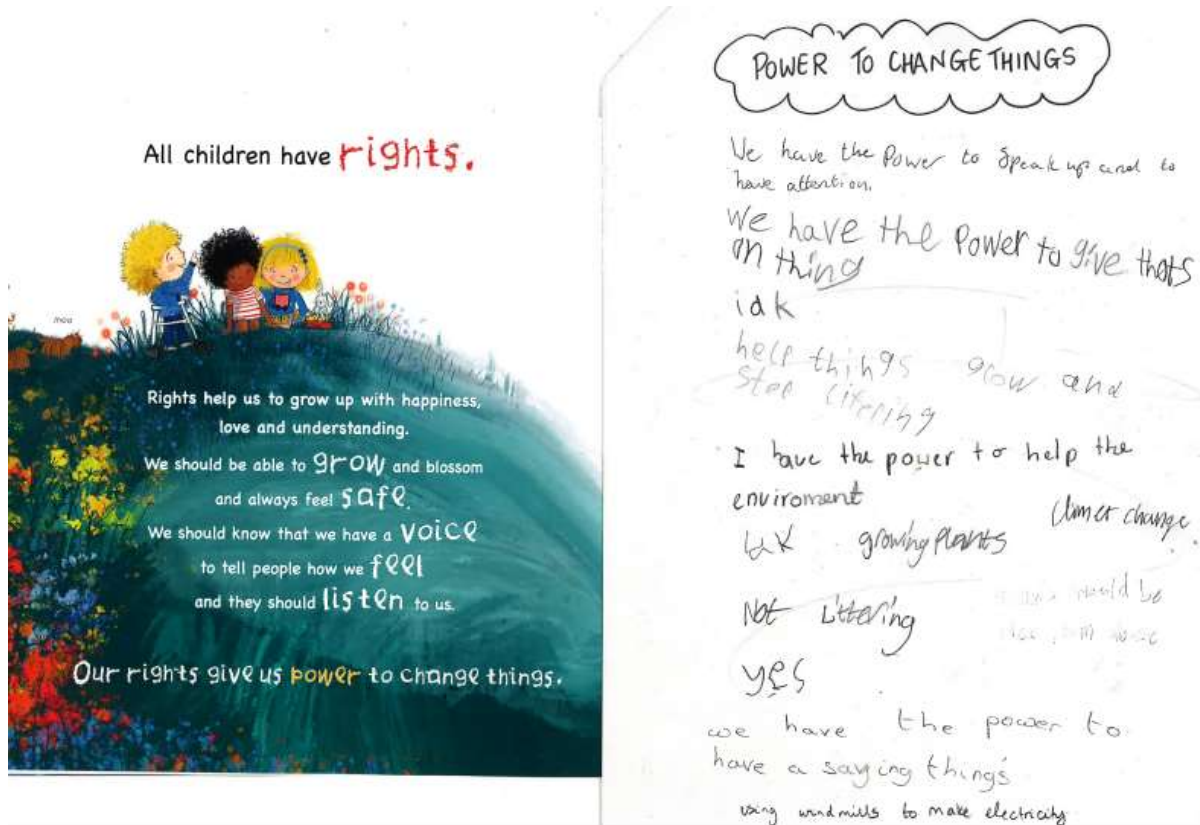 All children have rights.
moo
Rights help us to grow up with happiness,
love and understanding.
We should be able to grow and blossom
and always feel safe.
We should know that we have a voice
to tell people how we feel
and they should listen to us.
Our rights give us power to change things.
POWER TO CHANGE THINGS
We have the Power to Speak up and to
have attention.
We have the Power to give thots
on thing
idk
help things grow and
stop litering
I have the power to help the
enviroment
climet change
growing plants
Not Littering
should be
yes
we have the power to
have a saying things
using windmills to make electricity